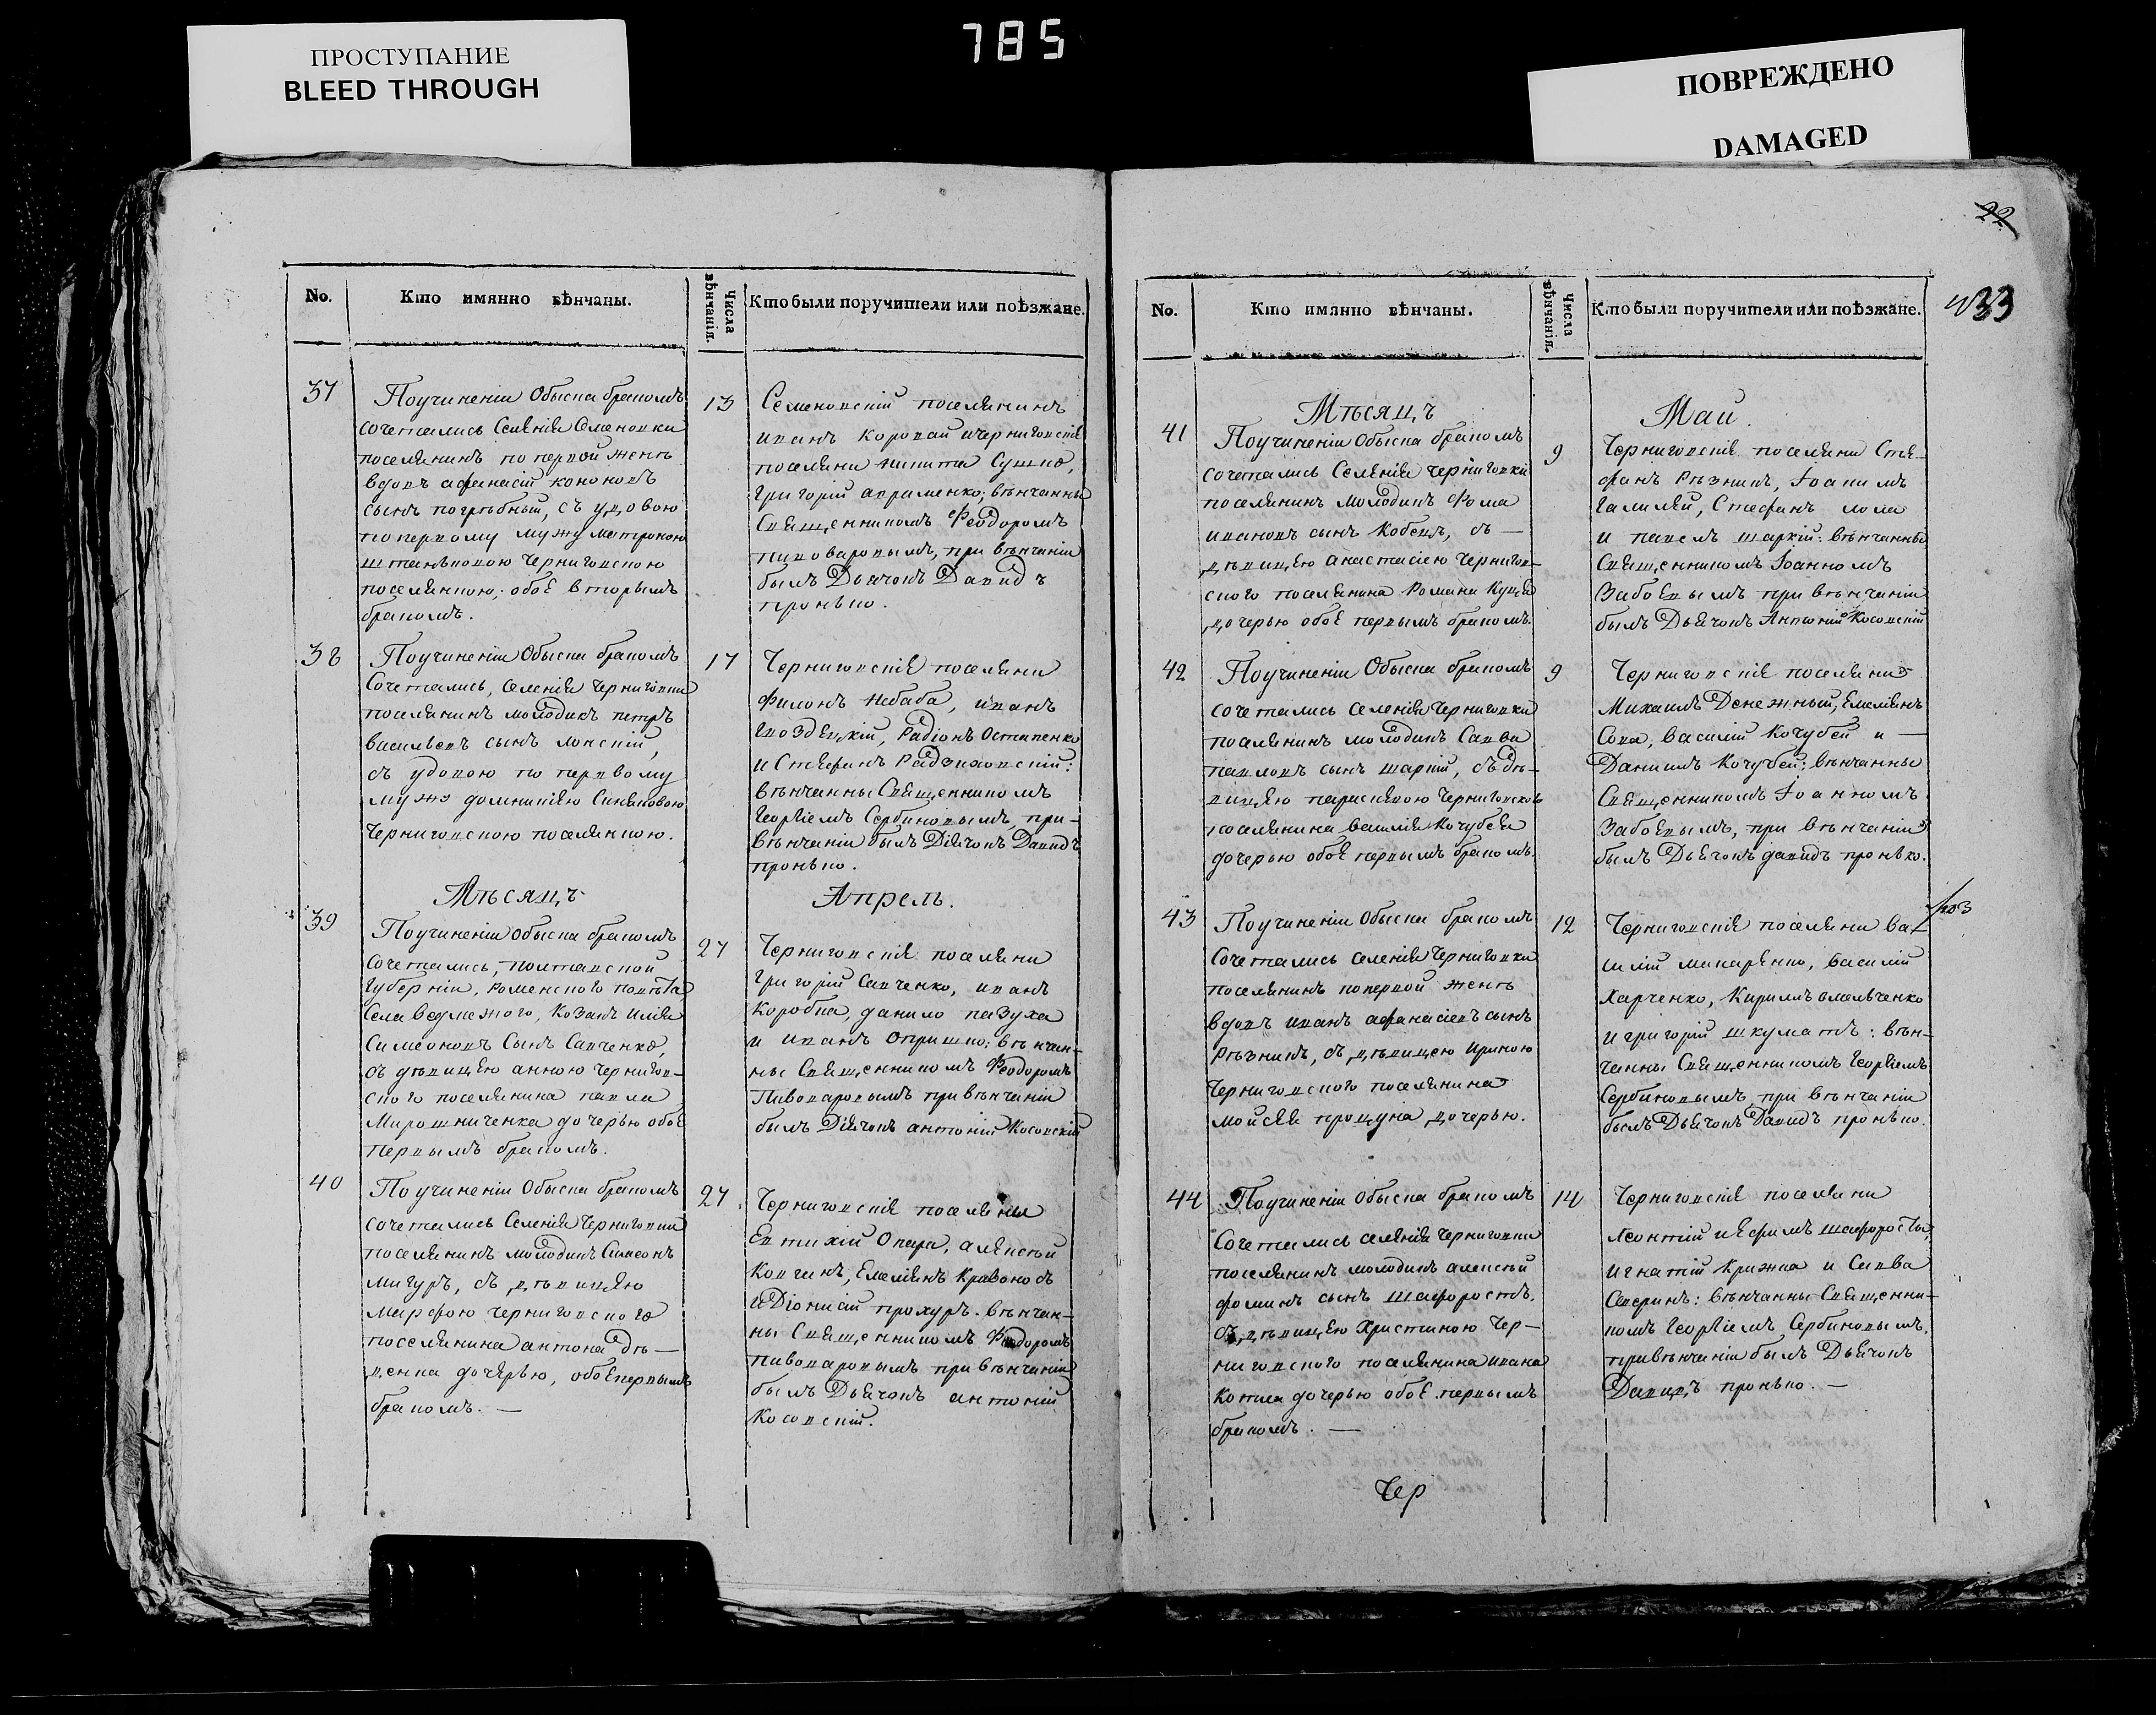 ПРОСТУПАНИЕ
BLEED THROUGH
785
ПОВРЕЖДЕНО
DAMAGED
22
33
No.
Кто имянно вѣнчаны.
Числа вѣнчанія.
Кто были поручители или поѣзжане.
37
Поучиненіи Обыска бракомъ
сочетались Селенія Семеновки
поселянинъ по первой женѣ
вдовъ афанасій кононовъ
сынъ погрѣбный, съ удовою
по первому мужу матроною
черниговскою
поселянкою; обоє вторымъ
бракомъ.
13
Семеновскій поселянинъ
иванъ коровай ичерниговскіе
поселяни никита Сушко,
григорій авраменко; вѣнчанны
Священникомъ Феодоромъ
пивоваровымъ, при вѣнчаніи
былъ Дьячокъ Давидъ
пронько.
38
Поучиненіи Обыска бракомъ
Сочетались, селенія Черниговки
поселянинъ молодикъ петръ
васильевъ сынъ лонскій,
съ удовою по первому
мужу домникіею Синяковою
Черниговскою поселянкою.
17
Черниговскіе поселяни
Филонъ Небаба, иванъ
гвоздецкій, Радіонъ Остапенко
и Стефанъ Радзиховскій:
вѣнчанны Священникомъ
Георгіемъ Сербиновымъ, при-
вѣнчаніи былъ Діячокъ Давидъ
пронько.
Мѣсяцъ
Апрель.
39
Поучиненіи Обыска бракомъ
сочетались, полтавской
губерніи, роменского повѣта
села ведмежого, козакъ илія
Симеоновъ Сынъ Савченко,
съ дѣвицею анною чернигов-
ского поселянина павла
Мирошниченка дочерью обоє
первымъ бракомъ.
27
Черниговскіе поселяни
григорій Савченко, иванъ
коробка, данило пазуха
и иванъ опришко: вѣнчан-
ны Священникомъ Феодоромъ
Пивоваровымъ при вѣнчаніи
былъ Діячокъ антоній Косовскій
40
Поучиненіи Обыска бракомъ
сочетались Селенія Черниговки
поселянинъ молодикъ Симеонъ
мигуръ, съ дѣвицею
марфою черниговского
поселянина антона дѣ—
ценка дочерью, обоє первымъ
бракомъ. —
27
Черниговскіе поселяни
Евтихій Опара, алексѣй
Ковгинъ, Емеліянъ кравоносъ
и Діонисій прохуръ. вѣнчан-
ны Священникомъ Феодоромъ
пивоваровымъ при вѣнчаніи
былъ Дьячокъ антоній
косовскій.
No.
Кто имянно вѣнчаны.
Числа вѣнчанія.
Кто были поручители или поѣзжане.
Мѣсяцъ
Май.
41
Поучиненіи Обыска бракомъ
сочетались Селенія черниговки
поселянинъ молодикъ Фома
ивановъ сынъ Кобецъ, съ —
дѣвицею анастасіею чернигов-
ского поселянина Романа Куцея
дочерью обоє первымъ бракомъ.
9
Черниговскіе поселяни Сте-
фанъ Рѣзникъ, Іоакимъ
галилей, Стефанъ лола
и павелъ шаркій: вѣнчанны
Священникомъ Іоанномъ
Забоєвымъ при вѣнчаніи
былъ Дьячокъ Антоній Косовскій
42
Поучиненіи Обыска бракомъ
сочетались селенія Черниговки
поселянинъ молодикъ Савва
павловъ сынъ шаркій, съ дѣ-
вицею параскевою Черниговского
поселянина василія Кочубея
дочерью обоє первымъ бракомъ.
9
Черниговскіе поселяни
Михаилъ Денежный, Емеліянъ
Сова, василій Кочубей и —
Даниилъ Кочубей: вѣнчанны
Священникомъ Іоанномъ
Забоєвымъ, при вѣнчаніи
былъ Дьячокъ давидъ пронько.
43
Поучиненіи Обыска бракомъ
сочетались селенія Черниговки
поселянинъ попервой женѣ
вдовъ иванъ афанасіевъ сынъ
Рѣзникъ, съ дѣвицею Ириною
Черниговского поселянина
мойсея процуна дочерью.
12
Черниговскіе поселяни ва-
силій макаренко, василій
Харченко, Кирилъ омельченко
и григорій шкуматъ: вѣн-
чанны Священникомъ Георгіемъ
Сербиновымъ, при вѣнчаніи
былъ Дьячокъ Давидъ пронько.
44
Поучиненіи Обыска бракомъ
Сочетались селенія Черниговки
поселянинъ молодикъ алексѣй
фоминъ сынъ шафоростъ,
съ дѣвицею Христиною Чер—
ниговского поселянина ивана
котла дочерью обоє первымъ
бракомъ. —
14
Черниговскіе поселяни
Леонтій иЕфимъ шафоросты,
игнатій крижка и Савва
Сверинъ: вѣнчанны Священни-
комъ Георгіемъ Сербиновымъ,
привѣнчаніи былъ Дьячокъ
Давидъ пронько. —
Чер